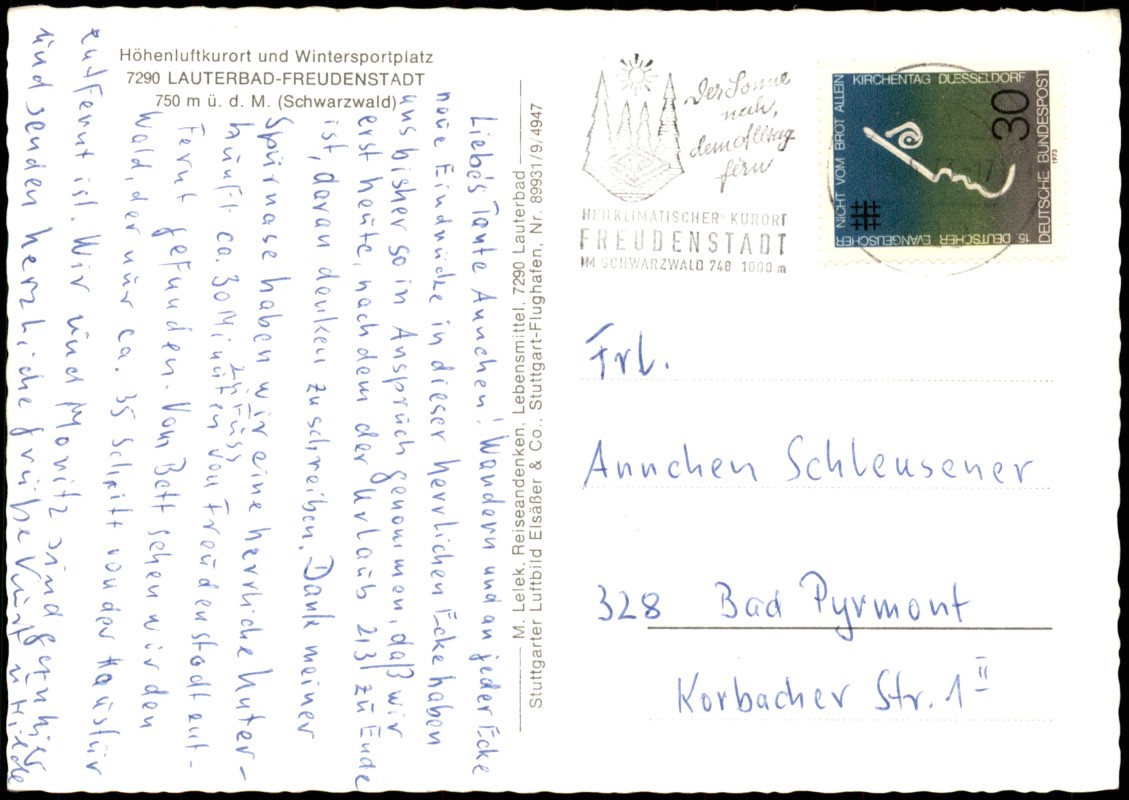 Höhenluftkurort und Wintersportplatz
7290 LAUTERBAD-FREUDENSTADT
750 m ü. d. M. (Schwarzwald)
Liebes Tante Annchen! Wandern und an jeder Ecke
neue Eindrücke in dieser herrlichen Ecke haben
uns bisher so in Anspruch genommen, daß wir
erst heute, nachdem der Urlaub 2/3 zu Ende
ist, daran denken zu schreiben. Dank meiner
Spürnase haben wir eine herrliche Unter-
kunft ca. 30 Minuten von Freudenstadt ent-
zu Fuss
fernt gefunden. Vom Bett sehen wir den
Wald, der nur ca. 35 Schritt von der Haustür
entfernt ist. Wir und Moritz sind gern hier
und senden herzliche Grüße
M. Lelek, Reiseandenken, Lebensmittel, 7290 Lauterbad
Stuttgarter Luftbild Elsäßer & Co., Stuttgart-Flughafen, Nr. 89931/9/4947
Der Sonne
nah,
dem Alltag
fern
HEILKLIMATISCHER KURORT
FREUDENSTADT
IM SCHWARZWALD 740 1000 m
15. DEUTSCHER EVANGELISCHER KIRCHENTAG DUESSELDORF
NICHT VOM BROT ALLEIN
30
DEUTSCHE BUNDESPOST
1973
Frl.
Annchen Schleusener
328 Bad Pyrmont
Korbacher Str. 1 II